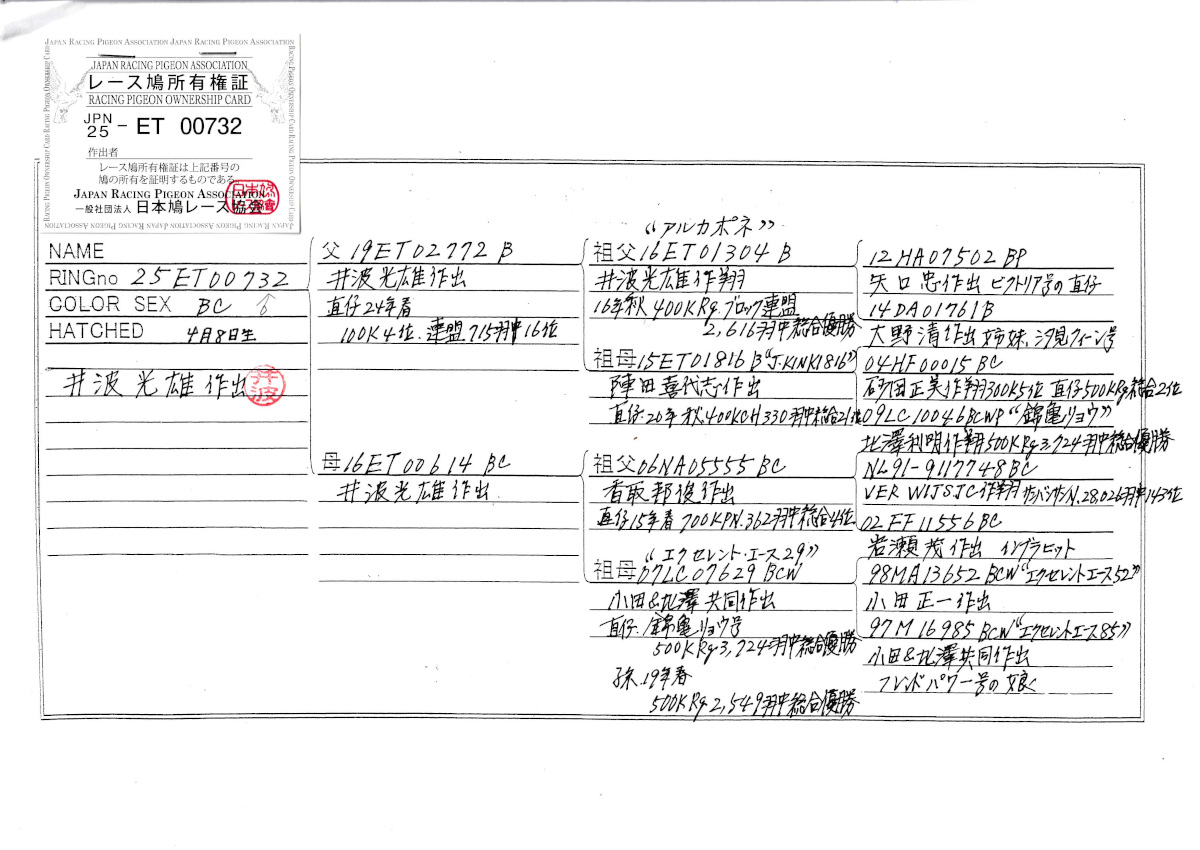 JAPAN RACING PIGEON ASSOCIATION JAPAN RACING PIGEON ASSOCIATION
JAPAN RACING PIGEON ASSOCIATION
レース鳩所有権証
RACING PIGEON OWNERSHIP CARD
JPN
25 - ET 00732
作出者
レース鳩所有権証は上記番号の
鳩の所有を証明するものである。
JAPAN RACING PIGEON ASSOCIATION
一般社団法人 日本鳩レース協会
NAME
RINGno 25ET00732
COLOR SEX BC ♂
HATCHED 4月8日生
井波光雄作出
井波
父 19ET02772 B
井波光雄作出
直仔24年春
100K4位、連盟715羽中16位
母16ET00614 BC
井波光雄作出
“アルカポネ”
祖父16ET01304 B
井波光雄作翔
16年秋400KRg.ブロック連盟
2,616羽中総合優勝
祖母15ET01816 B“J.KINKI816”
陣田喜代志作出
直仔20年秋400KCH330羽中総合21位
祖父06NA05555 BC
香取邦俊作出
直仔15年春700KPN.362羽中総合4位
“エクセレント・エース29”
祖母07LC07629 BCW
小田&北澤共同作出
直仔.錦亀リョウ号
500KRg3,724羽中総合優勝
孫.19年春
500KRg2,549羽中総合優勝
12HA07502BP
矢口忠作出 ビクトリア号の直仔
14DA01761B
大野清作出 姉妹、汐見クィーン号
04HF00015BC
砂田正美作翔300K5位 直仔500KRg総合2位
09LC10046BCWP“錦亀リョウ”
北澤利明作翔500KRg3,724羽中総合優勝
NL91-9117748BC
VER WIJSJC作翔 サンバンサンN.28,026羽中143位
02FF11556BC
岩瀬茂作出 イングラビット
98MA13652BCW“エクセレントエース52”
小田正一作出
97M16985BCW“エクセレントエース85”
小田&北澤共同作出
フレンドパワー号の娘